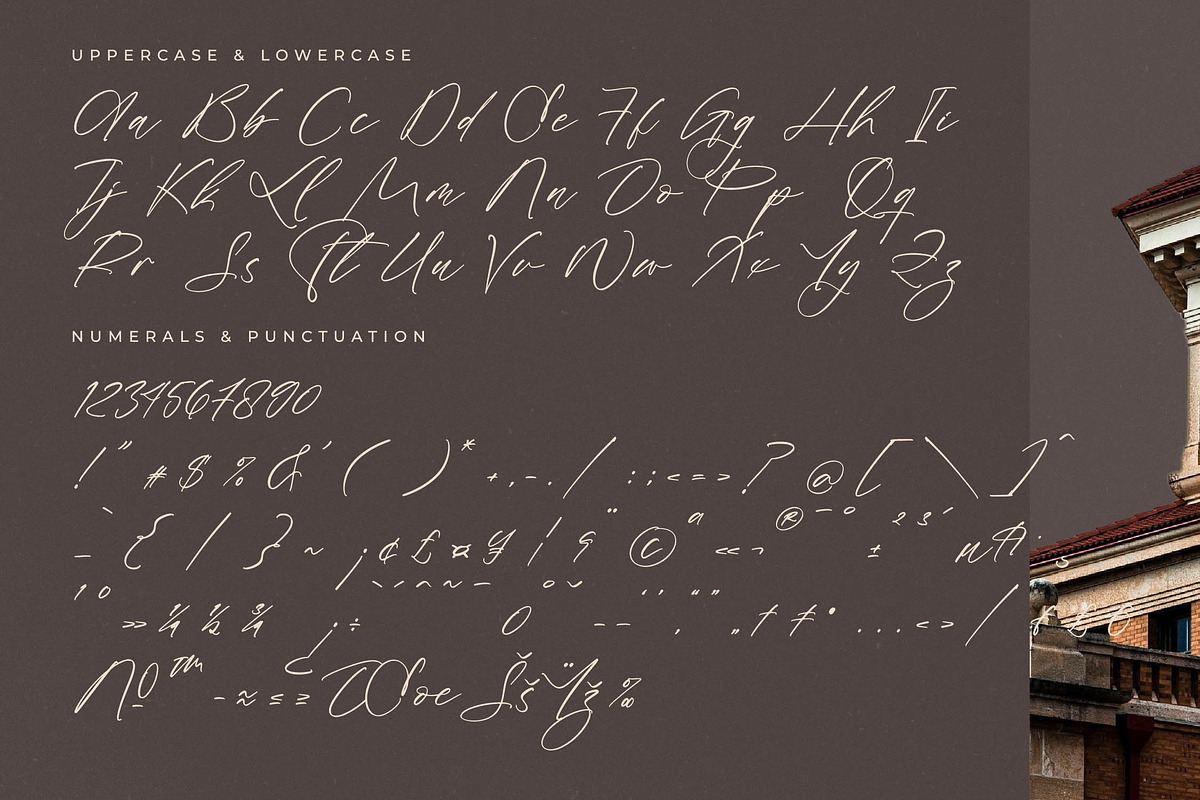 UPPERCASE & LOWERCASE
Aa Bb Cc Dd Ee Ff Gg Hh Ii
Jj Kk Ll Mm Nn Oo Pp Qq
Rr Ss Tt Uu Vv Ww Xx Yy Zz
NUMERALS & PUNCTUATION
1234567890
! " # $ % & ' ( ) * + , - . / : ; < = > ? @ [ \ ] ^
` _ { | } ~ ¡ ¢ £ ¤ ¥ ¦ § ¨ © ª « ¬ ® ¯ ° ± ² ³ ´ µ ¶ · ¸
¹ º » ¼ ½ ¾ ¿ ÷ ˋ ˊ ˆ ˜ ˉ ˚ ˇ 0 – — ‘ ’ ‚ “ ” „ † ‡ • … ‹ › ⁄ ƒ
№ ™ − ≈ ≤ ≥ Œœ Šš Ÿ ž ‰